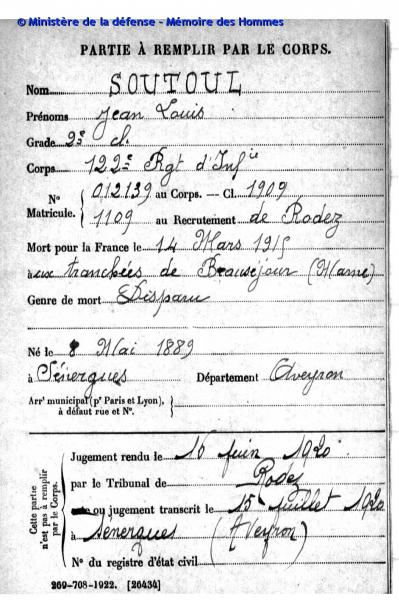 © Ministère de la défense - Mémoire des Hommes
PARTIE À REMPLIR PAR LE CORPS.
Nom SOUTOUL
Prénoms Jean Louis
Grade 2e cl.
Corps 122e Rgt d'Infie
N° Matricule. { 012139 au Corps. — Cl. 1909
1109 au Recrutement de Rodez
Mort pour la France le 14 Mars 1915
à aux tranchées de Beauséjour (Marne)
Genre de mort Disparu
Né le 8 Mai 1889
à Sénergues Département Aveyron
Arrt municipal (pr Paris et Lyon),
à défaut rue et N°.
Cette partie n'est pas à remplir par le Corps.
Jugement rendu le 16 juin 1920
par le Tribunal de Rodez
ou jugement transcrit le 15 juillet 1920
à Sénergues (Aveyron)
N° du registre d'état civil
269-708-1922. [26434]